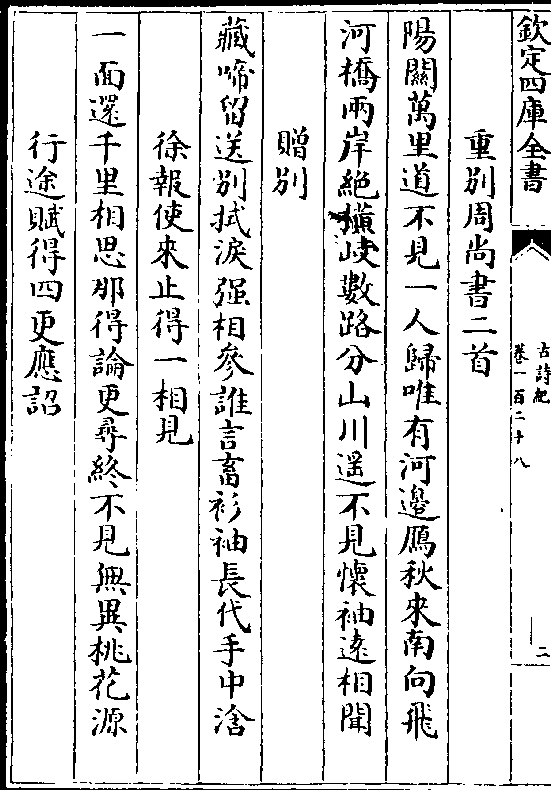 欽定四庫全書
古詩紀
卷一百二十八
二
重別周尚書二首
陽關萬里道不見一人歸唯有河邊鴈秋來南向飛
河橋兩岸絶橫岐數路分山川遥不見懷袖遠相聞
贈別
藏啼留送別拭淚强相參誰言畜衫袖長代手中浛
徐報使來止得一相見
一面還千里相思那得論更尋終不見無異桃花源
行途賦得四更應詔